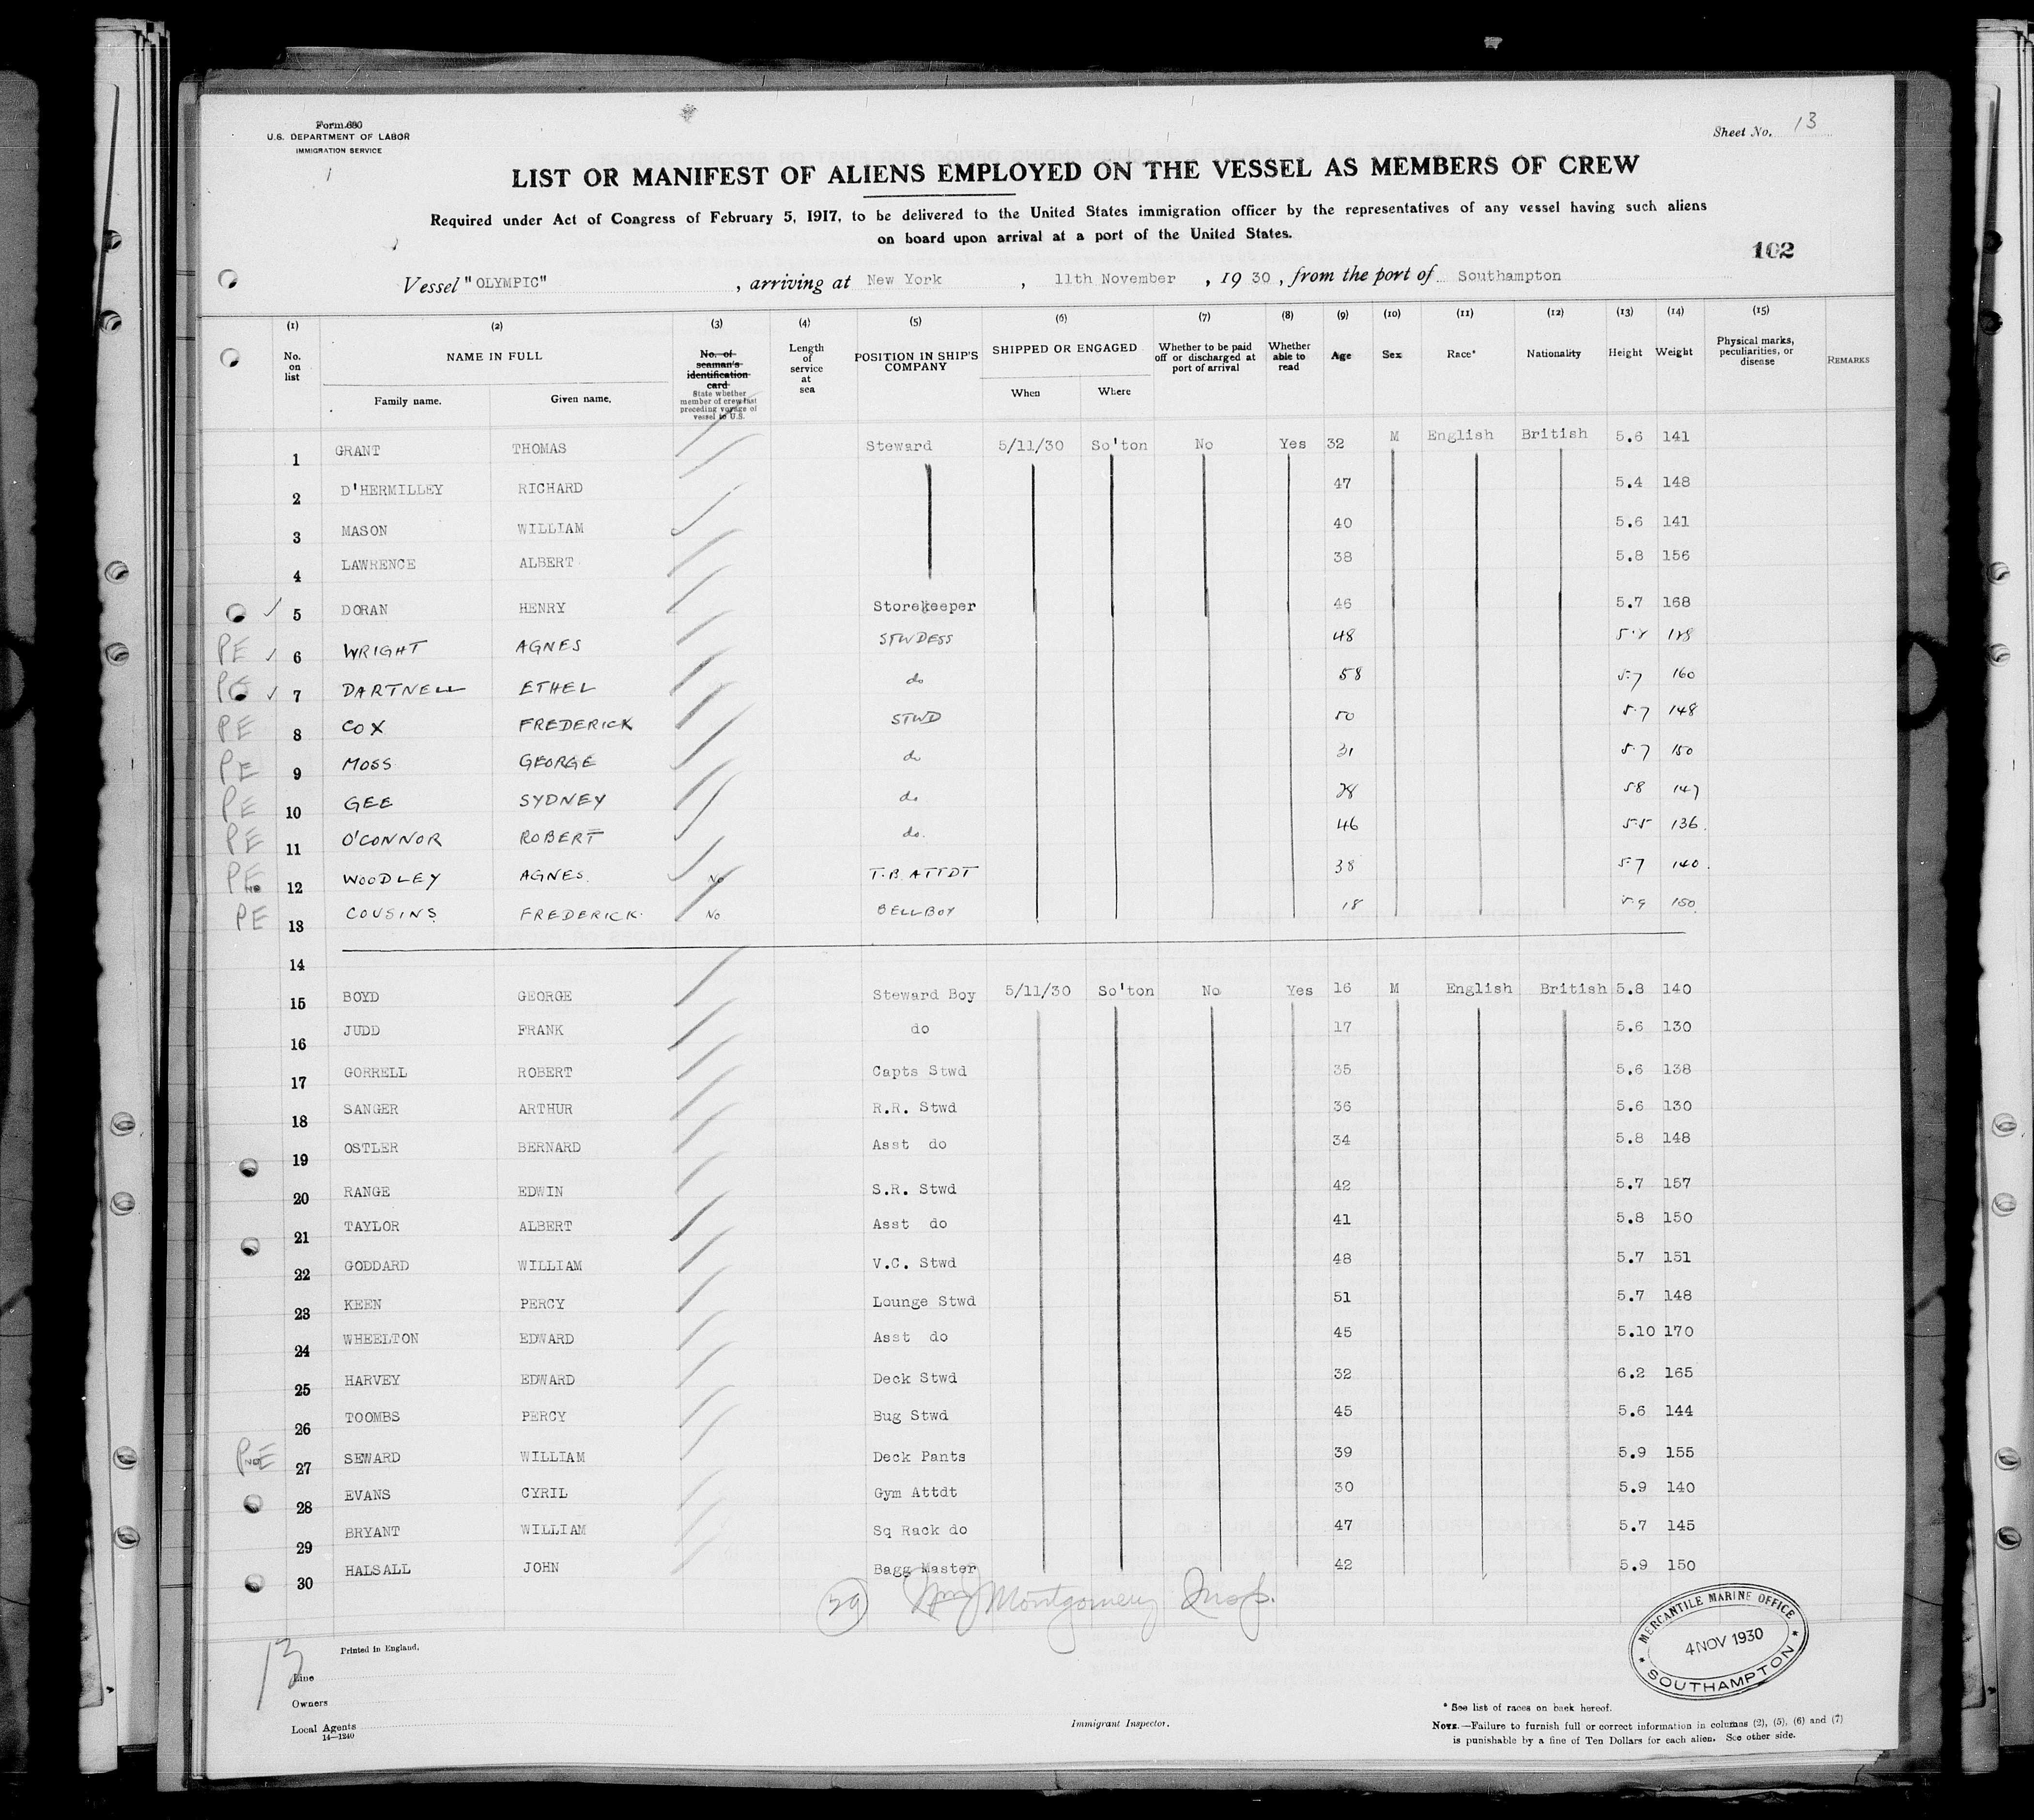 Form 680
U.S. DEPARTMENT OF LABOR
IMMIGRATION SERVICE
Sheet No. 13
LIST OR MANIFEST OF ALIENS EMPLOYED ON THE VESSEL AS MEMBERS OF CREW
Required under Act of Congress of February 5, 1917, to be delivered to the United States immigration officer by the representatives of any vessel having such aliens
on board upon arrival at a port of the United States.
102
Vessel "OLYMPIC", arriving at New York, 11th November, 1930, from the port of Southampton
(1) (2) (3) (4) (5) (6) (7) (8) (9) (10) (11) (12) (13) (14) (15)
No. on list
NAME IN FULL
Family name. Given name.
No. of seaman's identification card
State whether member of crew last preceding voyage of vessel to U.S.
Length of service at sea
POSITION IN SHIP'S COMPANY
SHIPPED OR ENGAGED
When Where
Whether to be paid off or discharged at port of arrival
Whether able to read
Age
Sex
Race*
Nationality
Height
Weight
Physical marks, peculiarities, or disease
REMARKS
1 GRANT THOMAS Steward 5/11/30 So'ton No Yes 32 M English British 5.6 141
2 D'HERMILLEY RICHARD 47 5.4 148
3 MASON WILLIAM 40 5.6 141
4 LAWRENCE ALBERT 38 5.8 156
5 DORAN HENRY Storekeeper 46 5.7 168
PE 6 WRIGHT AGNES STWDESS 48
7 DARTNELL ETHEL do 58 5.7 160
PE 8 COX FREDERICK STWD 50 5.7 148
PE 9 MOSS GEORGE do 31 5.7 150
PE 10 GEE SYDNEY do 28 58 147
PE 11 O'CONNOR ROBERT do. 46 5.5 136
PE 12 WOODLEY AGNES No T.B. ATTDT 38 5.7 140
PE 13 COUSINS FREDERICK No BELLBOY 18 5.9 150
14
15 BOYD GEORGE Steward Boy 5/11/30 So'ton No Yes 16 M English British 5.8 140
16 JUDD FRANK do 17 5.6 130
17 GORRELL ROBERT Capts Stwd 35 5.6 138
18 SANGER ARTHUR R.R. Stwd 36 5.6 130
19 OSTLER BERNARD Asst do 34 5.8 148
20 RANGE EDWIN S.R. Stwd 42 5.7 157
21 TAYLOR ALBERT Asst do 41 5.8 150
22 GODDARD WILLIAM V.C. Stwd 48 5.7 151
23 KEEN PERCY Lounge Stwd 51 5.7 148
24 WHEELTON EDWARD Asst do 45 5.10 170
25 HARVEY EDWARD Deck Stwd 32 6.2 165
26 TOOMBS PERCY Bug Stwd 45 5.6 144
PE 27 SEWARD WILLIAM Deck Pants 39 5.9 155
28 EVANS CYRIL Gym Attdt 30 5.9 140
29 BRYANT WILLIAM Sq Rack do 47 5.7 145
30 HALSALL JOHN Bagg Master 42 5.9 150
29 Montgomery Insp.
MERCANTILE MARINE OFFICE
4 NOV 1930
SOUTHAMPTON
13
Printed in England.
Line
Owners
Local Agents
14—1240
Immigrant Inspector.
* See list of races on back hereof.
NOTE.—Failure to furnish full or correct information in columns (2), (5), (6) and (7)
is punishable by a fine of Ten Dollars for each alien. See other side.